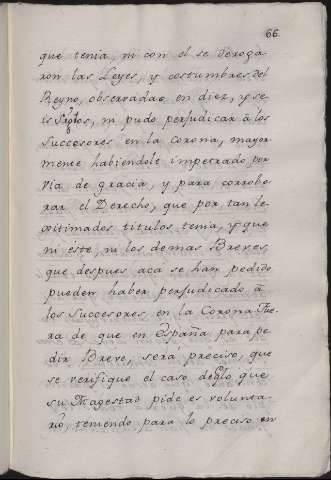 66
que tenia, ni con el se deroga
ron las Leyes, y costumbres del
Reyno, observadas en diez, y se
is Siglos, ni pudo perjudicar à los
Succesores en la Corona, mayor
mente habiendole impetrado por
vía de gracia, y para corrobo
rar el Derecho, que por tan le
gitimados titulos tenia, y que
ni este, ni los demas Breves,
que despues aca se han pedido
pueden haber perjudicado à
los Succesores en la Corona Fue
ra de que en España para pe
dir Breve, sera preciso, que
se verifique el caso de q.lo que
su Magestad pide es volunta
rio, teniendo para lo preciso en